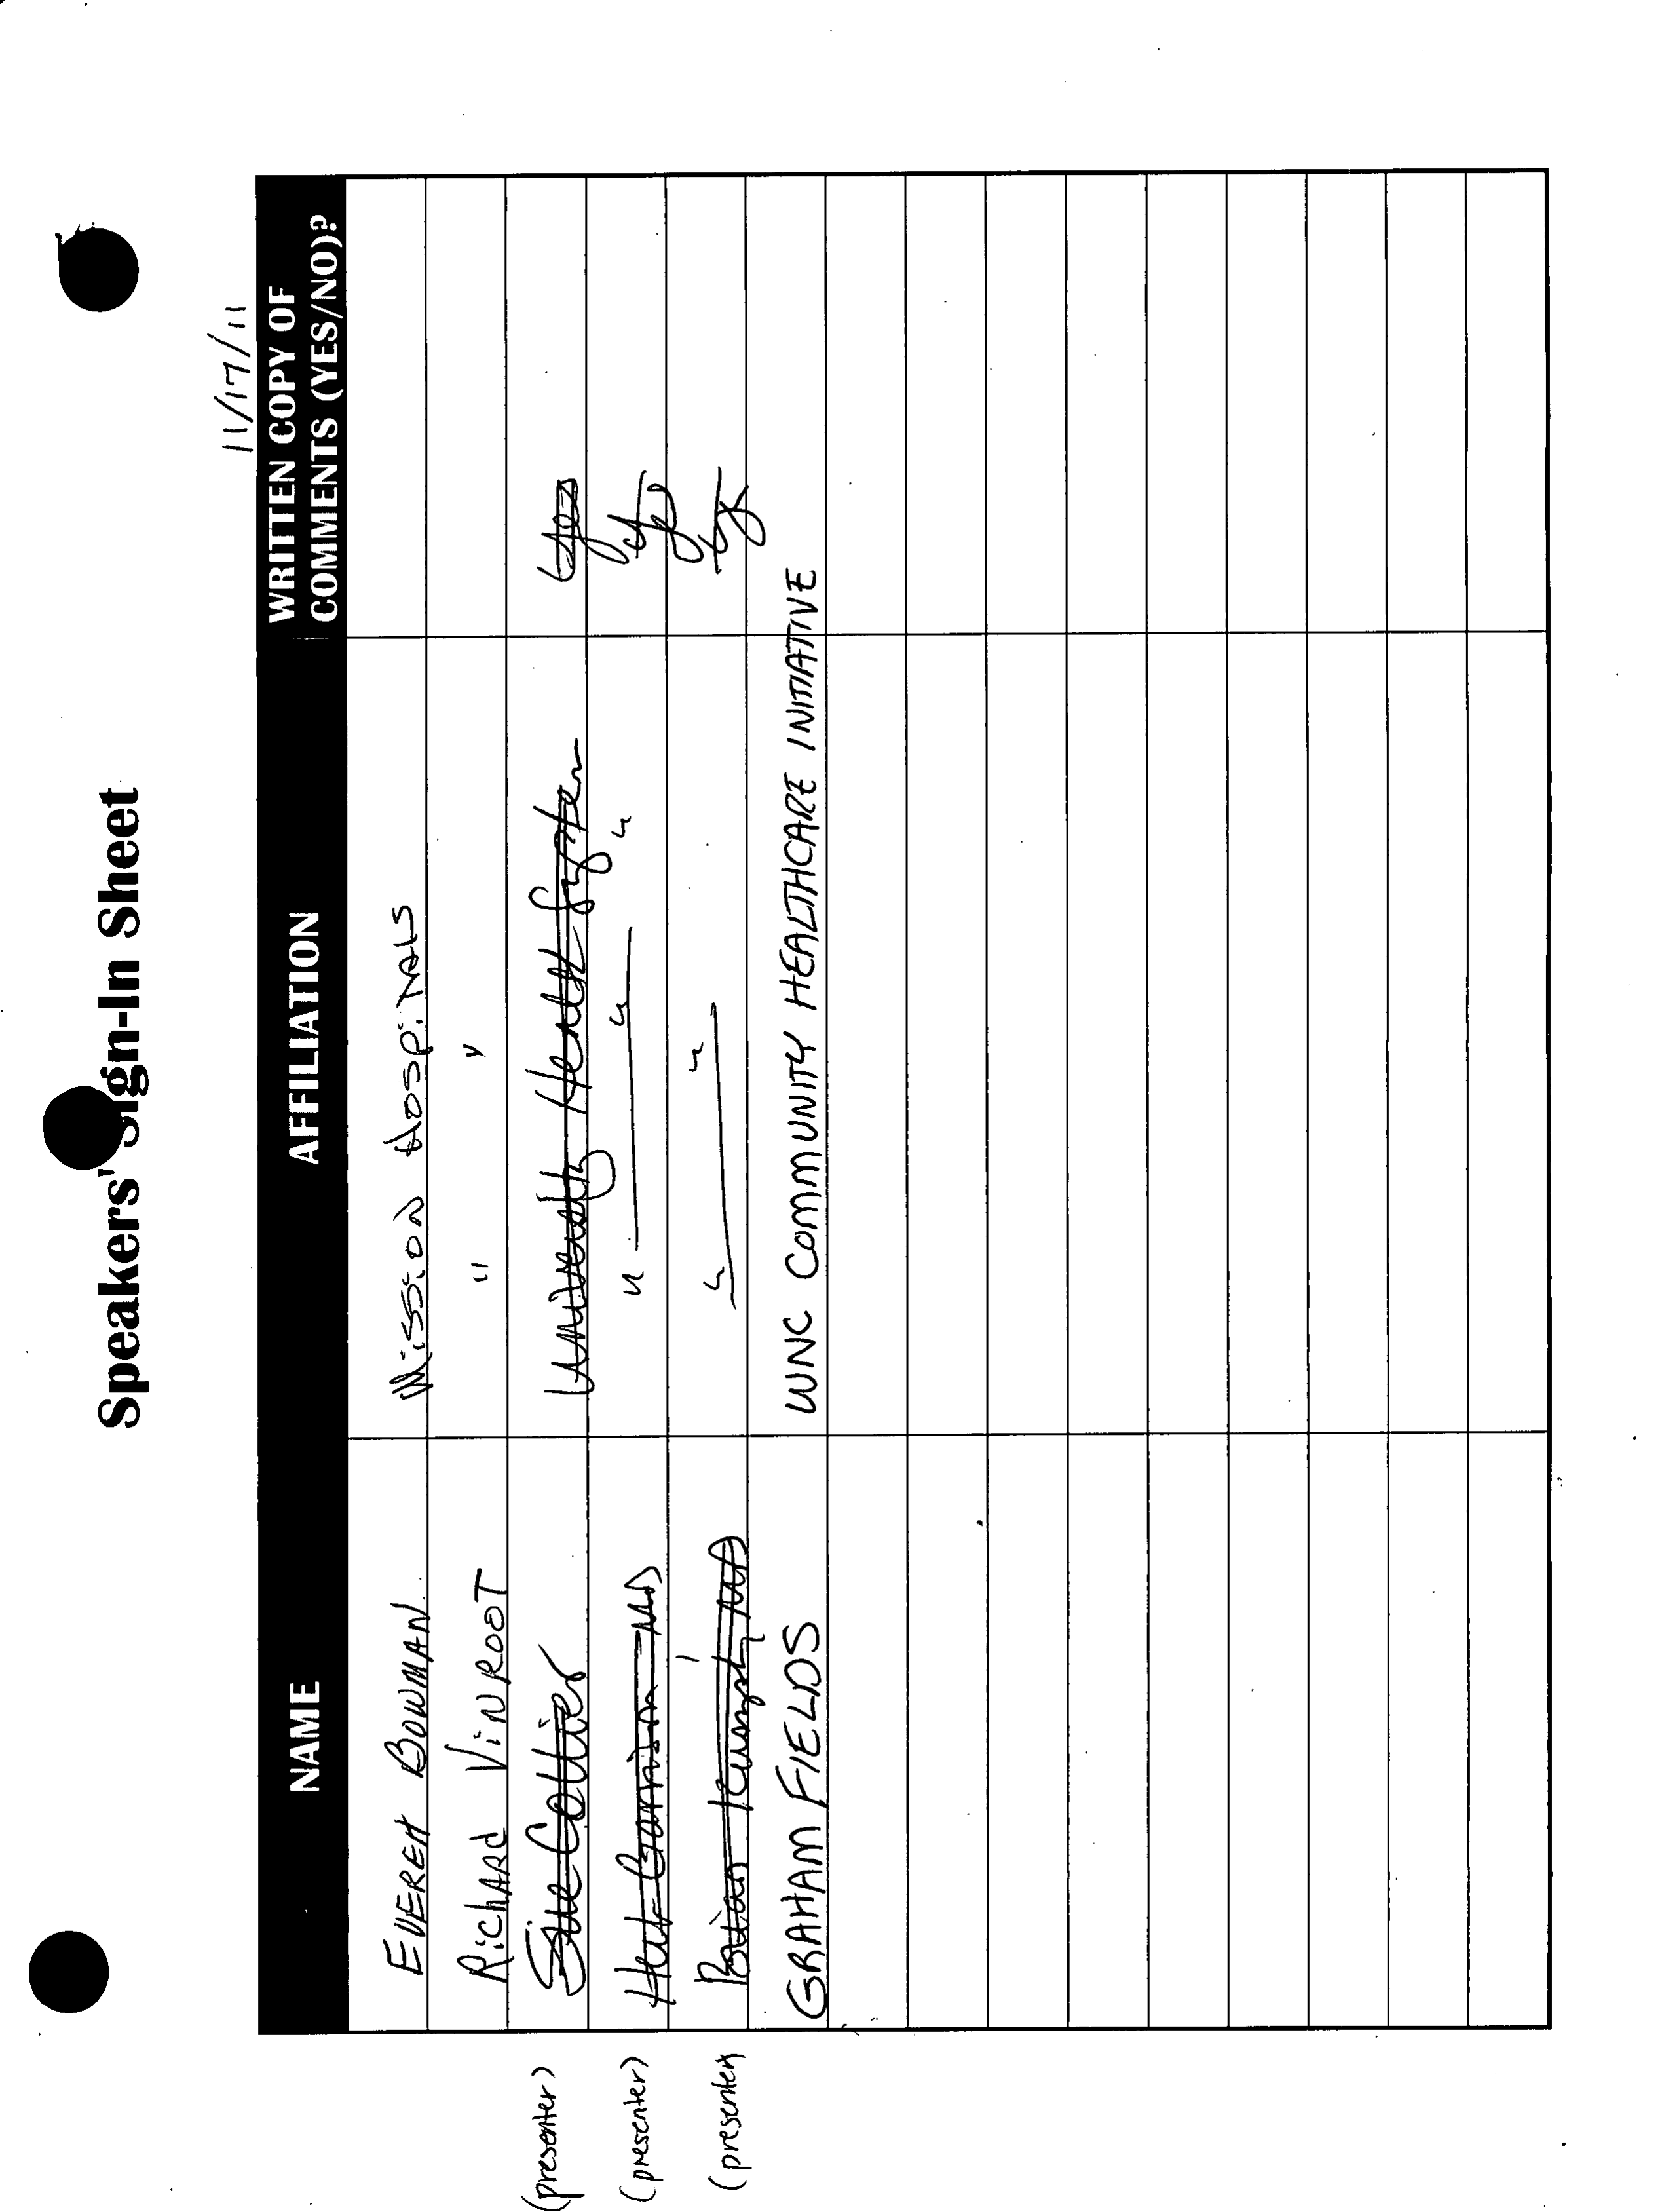 Speakers' Sign-In Sheet
11/17/11
NAME AFFILIATION WRITTEN COPY OF COMMENTS (YES/NO)?
EVERETT BOWMAN Mission Hospitals
Richard Vinroot " "
(presenter) Sue Collier University Health System yes
(presenter) Garrison MD " " " yes
(presenter) Brian MD " " yes
GRAHAM FIELDS WNC COMMUNITY HEALTHCARE INITIATIVE